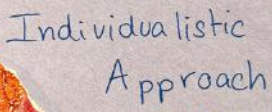 Individualistic
Approach